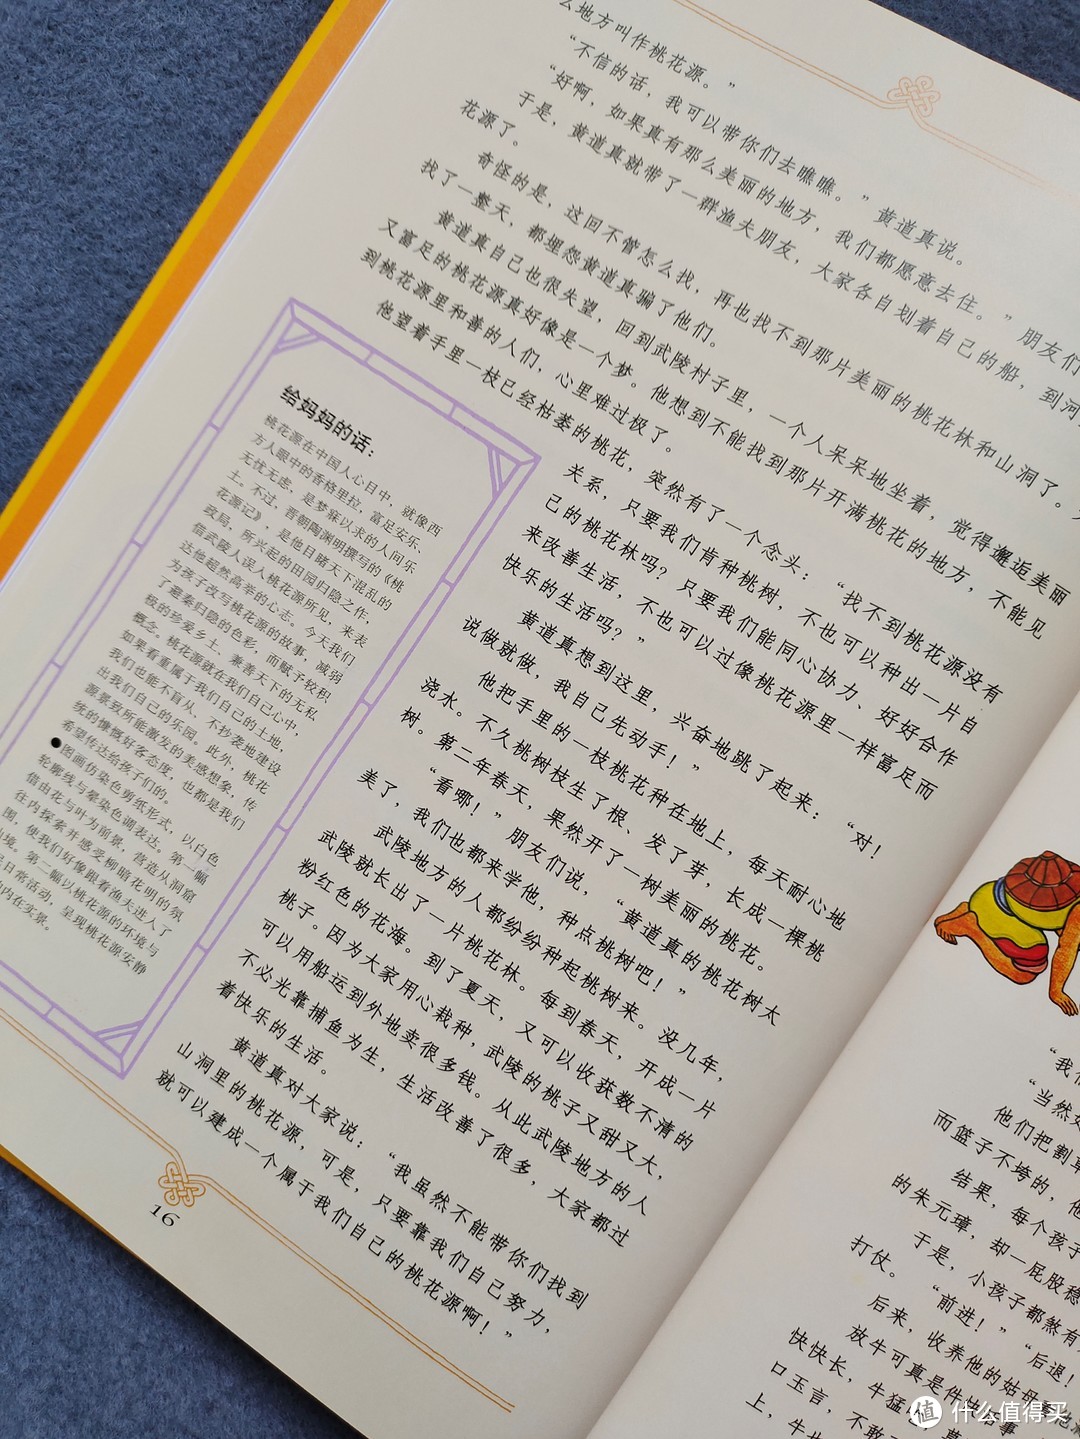 么地方叫作桃花源。”
“不信的话，我可以带你们去瞧瞧。”黄道真说。
“好啊，如果真有那么美丽的地方，我们都愿意去住。”朋友们
于是，黄道真就带了一群渔夫朋友，大家各自划着自己的船，到河
花源了。
奇怪的是，这回不管怎么找，再也找不到那片美丽的桃花林和山洞了。
找了一整天，都埋怨黄道真骗了他们。
黄道真自己也很失望，回到武陵村子里，一个人呆呆地坐着，觉得邂逅美丽
又富足的桃花源真好像是一个梦。他想到不能找到那片开满桃花的地方，不能见
到桃花源里和善的人们，心里难过极了。
他望着手里一枝已经枯萎的桃花，突然有了一个念头：“找不到桃花源没有
关系，只要我们肯种桃树，不也可以种出一片自
己的桃花林吗？只要我们能同心协力、好好合作
来改善生活，不也可以过像桃花源里一样富足而
快乐的生活吗？”
黄道真想到这里，兴奋地跳了起来：“对！
说做就做，我自己先动手！”
他把手里的一枝桃花种在地上，每天耐心地
浇水。不久桃树枝生了根、发了芽，长成一棵桃
树。第二年春天，果然开了一树美丽的桃花。
“看哪！”朋友们说，“黄道真的桃花树太
美了，我们也都来学他，种点桃树吧！”
武陵地方的人都纷纷种起桃树来。没几年，
武陵就长出了一片桃花林。每到春天，开成一片
粉红色的花海。到了夏天，又可以收获数不清的
桃子。因为大家用心栽种，武陵的桃子又甜又大，
可以用船运到外地卖很多钱。从此武陵地方的人
不必光靠捕鱼为生，生活改善了很多，大家都过
着快乐的生活。
黄道真对大家说：“我虽然不能带你们找到
山洞里的桃花源，可是，只要靠我们自己努力，
就可以建成一个属于我们自己的桃花源啊！”
给妈妈的话：
桃花源在中国人心目中，就像西
方人眼中的香格里拉，富足安乐、
无忧无虑，是梦寐以求的人间乐
土。不过，晋朝陶渊明撰写的《桃
花源记》，是他目睹天下混乱的
政局，所兴起的田园归隐之作，
借武陵人误入桃花源所见，来表
达他超然高举的心志。今天我们
为孩子改写桃花源的故事，减弱
了避秦归隐的色彩，而赋予较积
极的珍爱乡土、兼善天下的无私
概念。桃花源就在我们自己心中，
如果看重属于我们自己的土地，
我们也能不盲从、不抄袭地建设
出我们自己的乐园。此外，桃花
源景致所能激发的美感想象，传
统的慷慨好客态度，也都是我们
希望传达给孩子们的。
●图画仿染色剪纸形式，以白色
轮廓线与晕染色调表达。第一幅
借由花与叶为前景，营造从洞窟
往内探索并感受柳暗花明的氛
围，使我们好像跟着渔夫进入了
境。第二幅以桃花源的环境与
日常活动，呈现桃花源安静
内在实景。
16
“我们
“当然好
他们把割草
而篮子不垮的，他
结果，每个孩子
的朱元璋，却一屁股稳
于是，小孩子都煞有
打仗。
“前进！”“后退！
后来，收养他的姑母
放牛可真是件快活事
快快长，牛猛
口玉言，不敢
上，牛
值 什么值得买